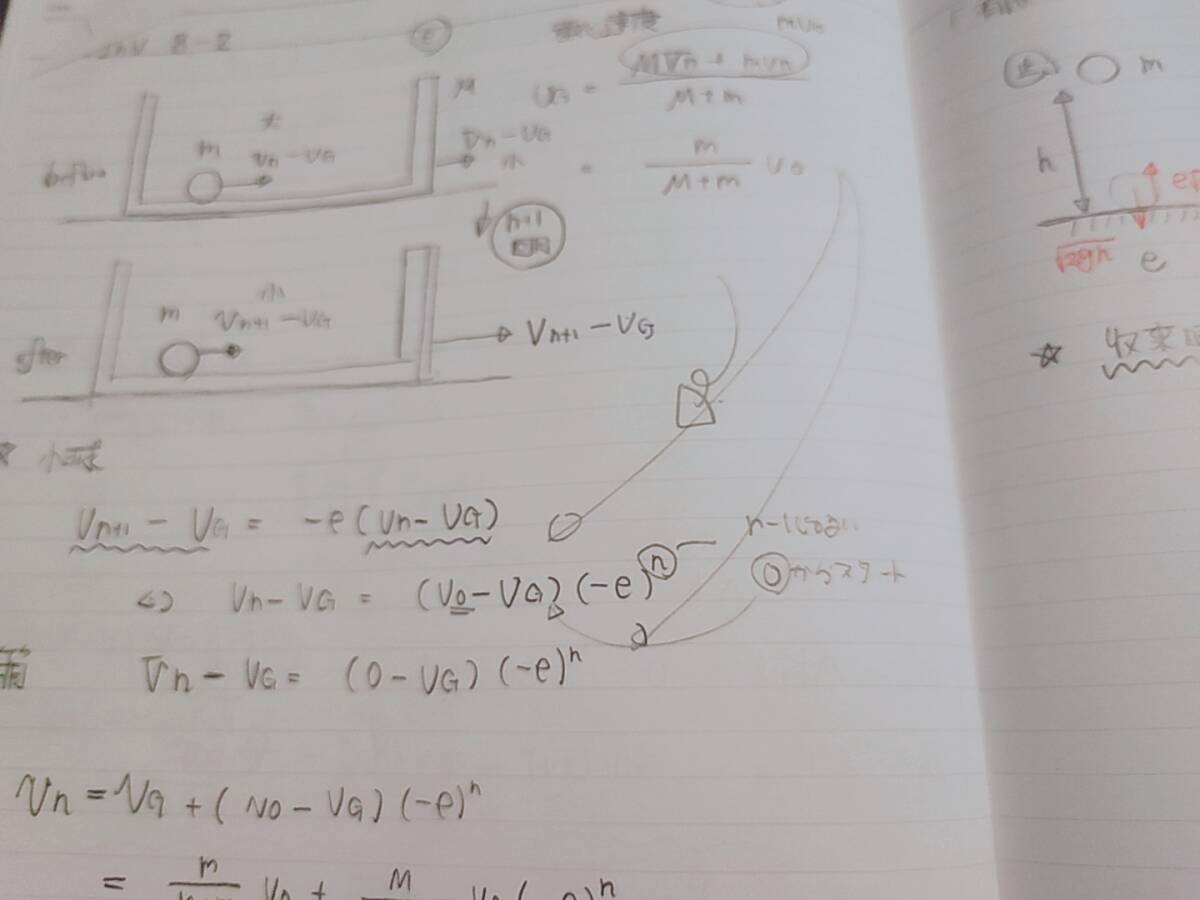 8-2
e
速度
M
vG = MVn + mvn / M+m
= m / M+m v0
m
大
vn - vG
Vn - vG
小
n+1
回目
after
m
小
Vn+1 - VG
Vn+1 - VG
小球
Vn+1 - VG = -e (Vn - VG)
⇔ Vn - VG = (V0 - VG) (-e)^n
0からスタート
Vn - VG = (0 - VG) (-e)^n
Vn = VG + (V0 - VG) (-e)^n
= m V0 + M V0 (-e)^n
m
h
√2gh
e
☆ 収束